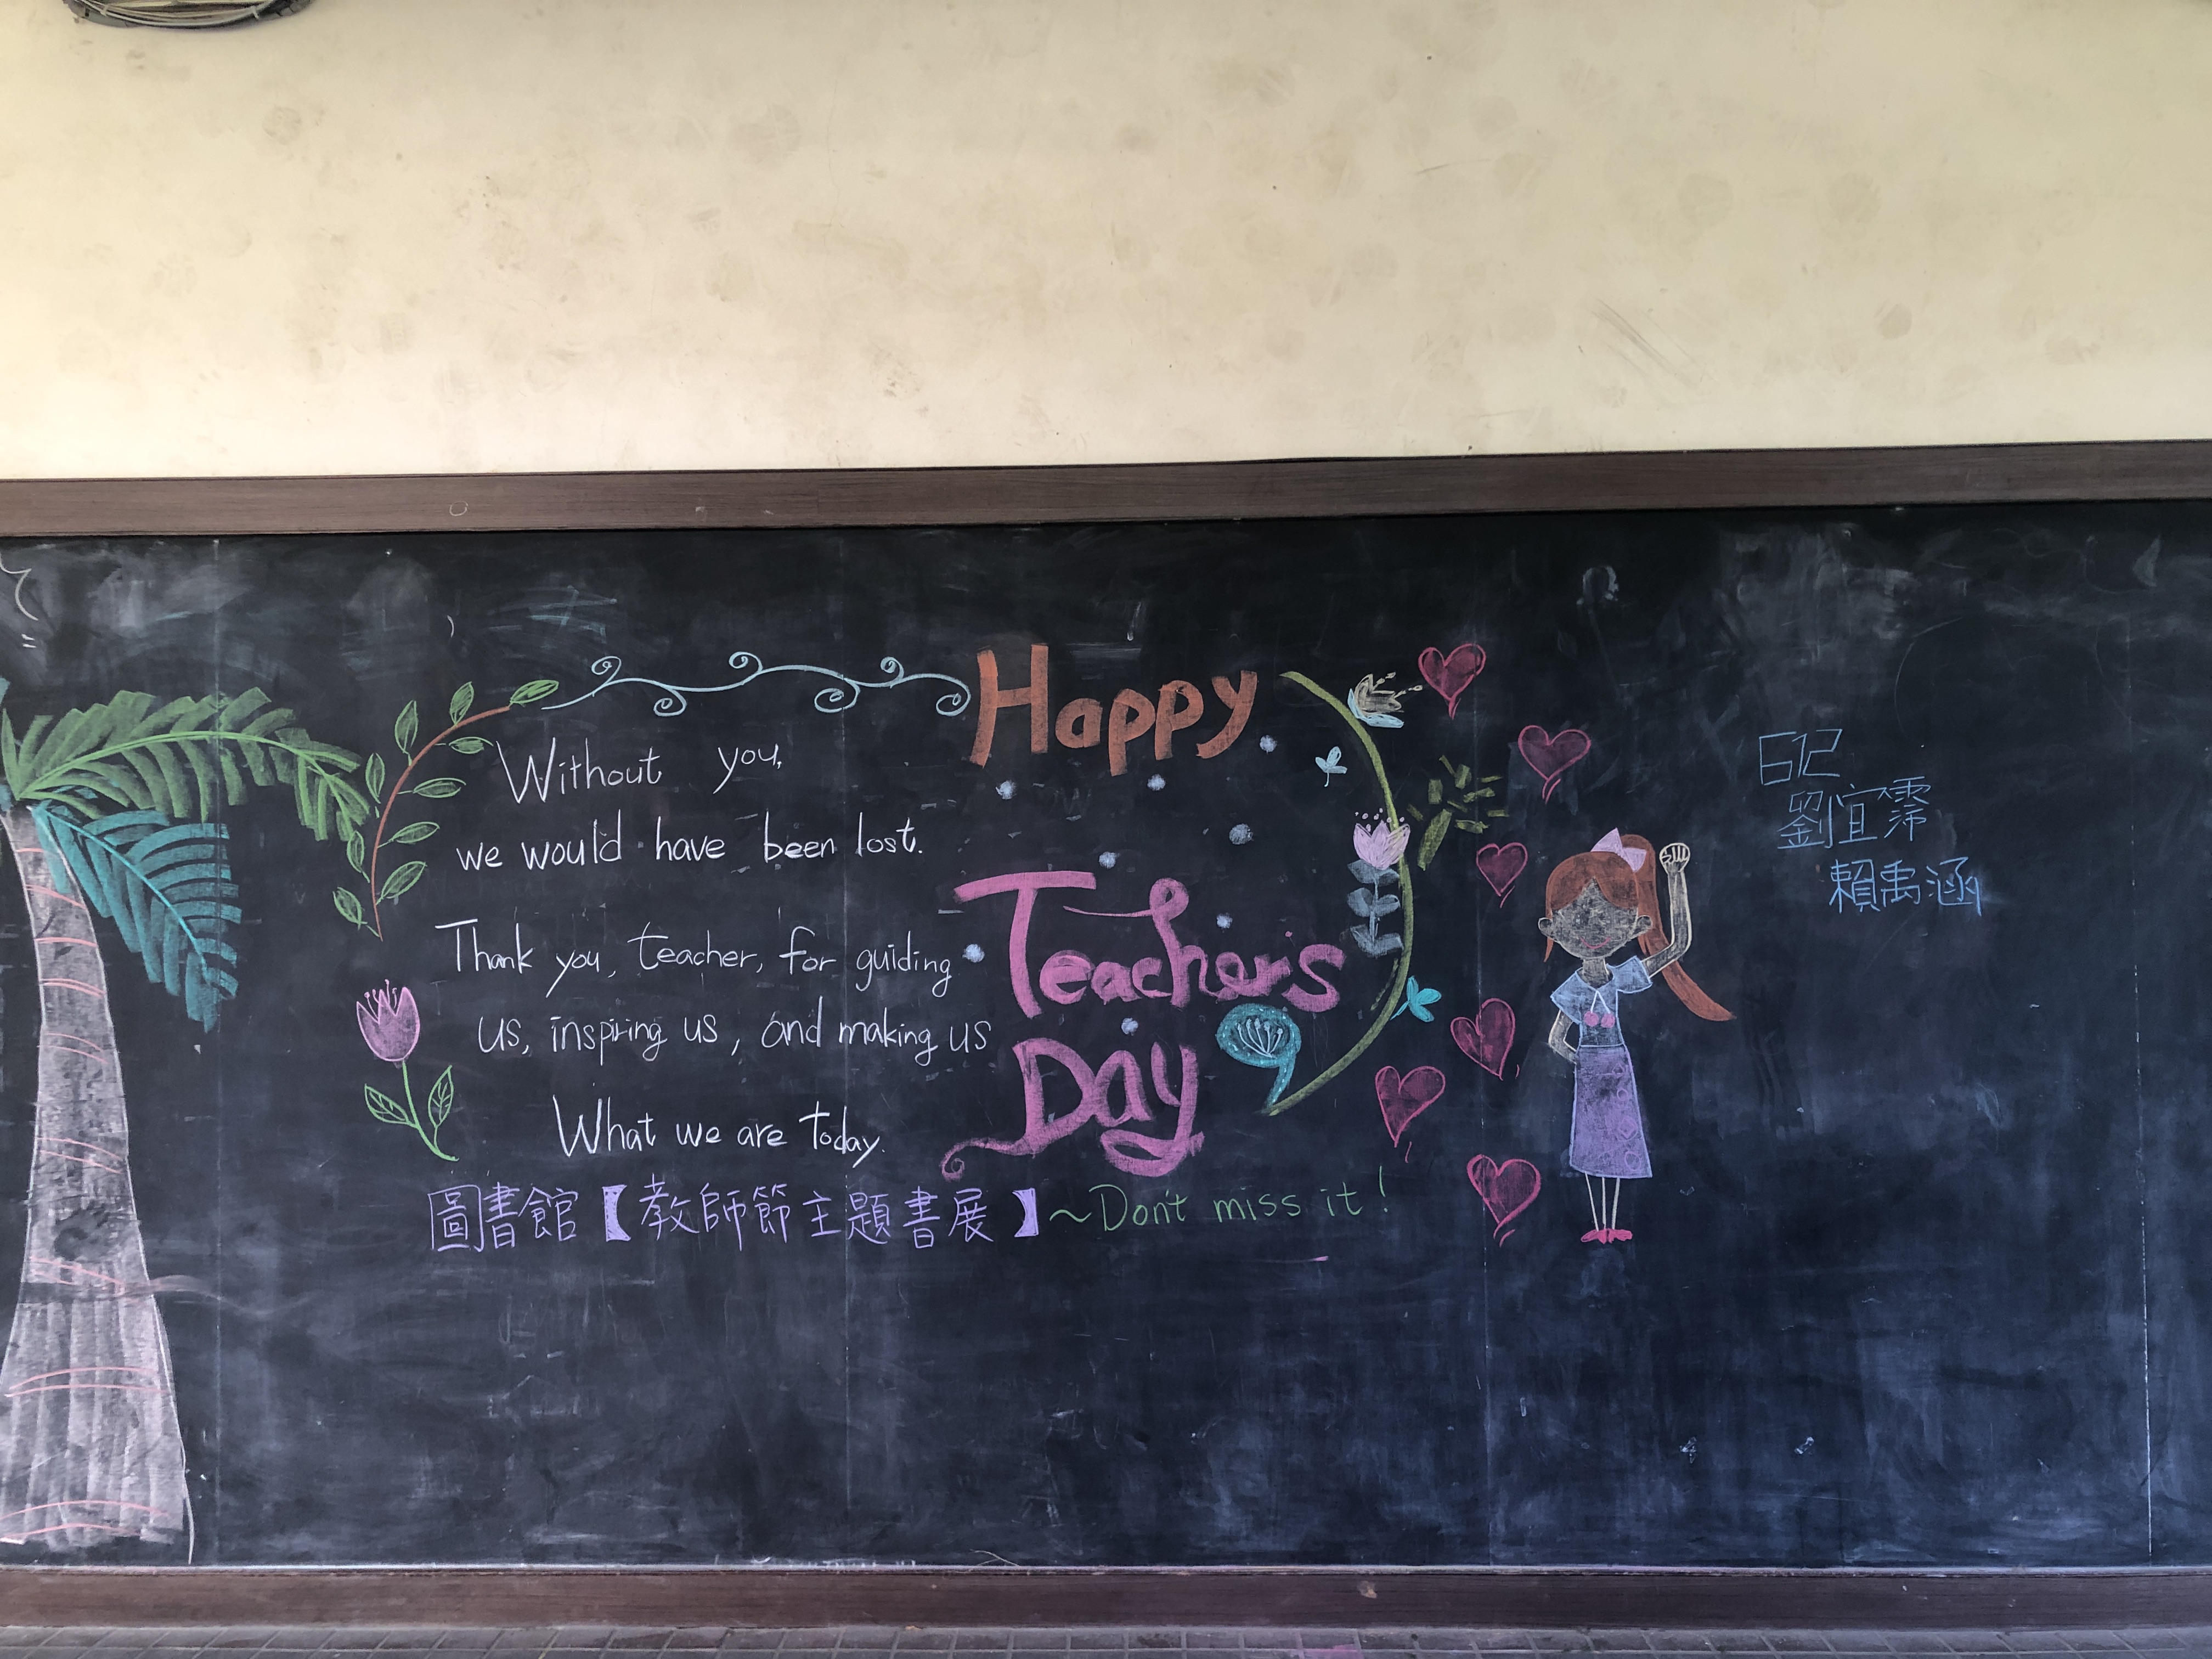 Happy
Teacher's
Day
Without you,
we would have been lost.
Thank you, teacher, for guiding
us, inspiring us, and making us
What we are today.
圖書館【教師節主題書展】~Don't miss it!
612
劉宜霈
賴禹涵